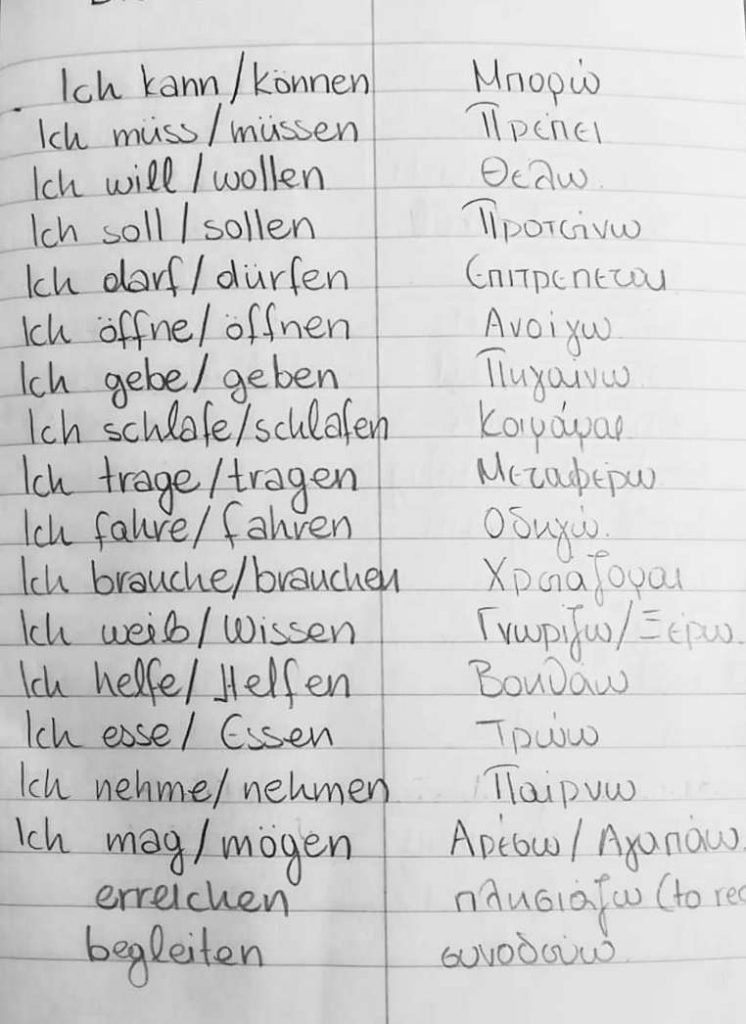 Ich kann/können Μπορώ
Ich müss/müssen Πρέπει
Ich will/wollen Θελω.
Ich soll/sollen Προτείνω
Ich darf/dürfen Επιτρεπεται
Ich öffne/öffnen Ανοίγω
Ich gebe/geben Πηγαίνω
Ich schlafe/schlafen Κοιμάμαι
Ich trage/tragen Μεταφέρω
Ich fahre/fahren Οδηγώ.
Ich brauche/brauchen Χρειάζομαι
Ich weiß/Wissen Γνωρίζω/Ξέρω.
Ich helfe/Helfen Βοηθάω
Ich esse/Essen Τρώω
Ich nehme/nehmen Παίρνω
Ich mag/mögen Αρέσω/Αγαπάω.
erreichen πλησιάζω (to rec
begleiten συνοδεύω